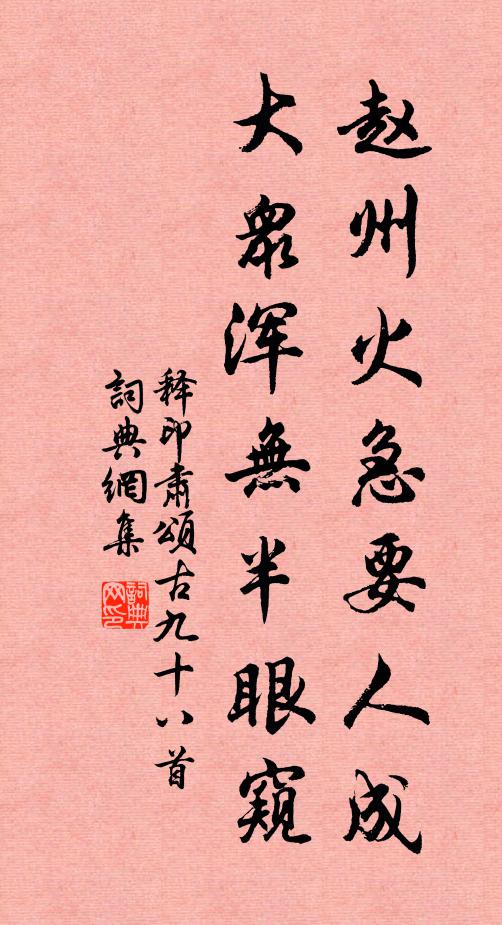 赵州火急要人成
大眾浑無半眼窺
释印肃頌古九十八首
詞典網集
詞典网印